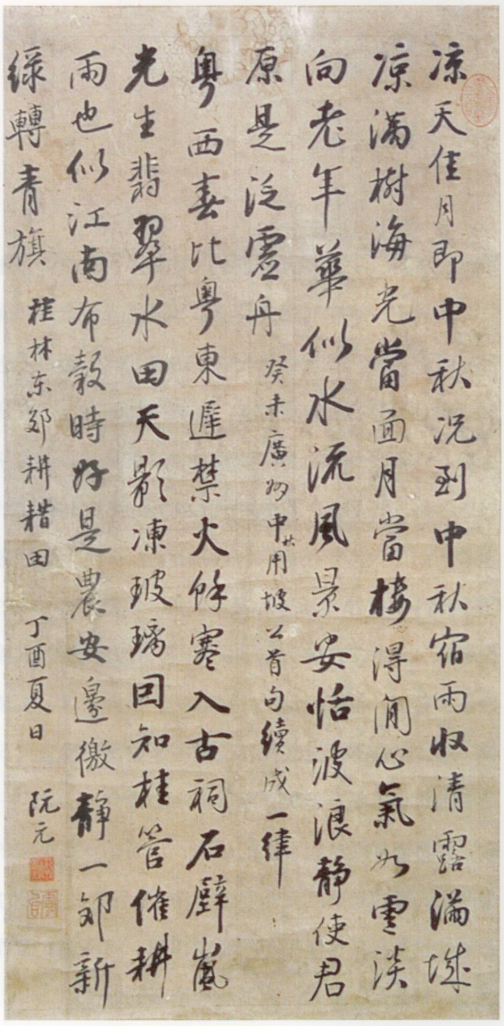 凉天佳月即中秋况到中秋宿雨收清露滿城
凉滿樹海光當面月當樓得閒心氣如雲淡
向老年華似水流風景安恬波浪靜使君
原是泛虛舟 癸未廣州中秋用坡公首句續成一律
粵西春比粵東遲禁火餘寒入古祠石壁嵐
光生翡翠水田天影凍玻璃因知桂管催耕
雨也似江南布穀時好是農安邊徼靜一郊新
綠轉青旗 桂林东郊耕耤田 丁酉夏日 阮元